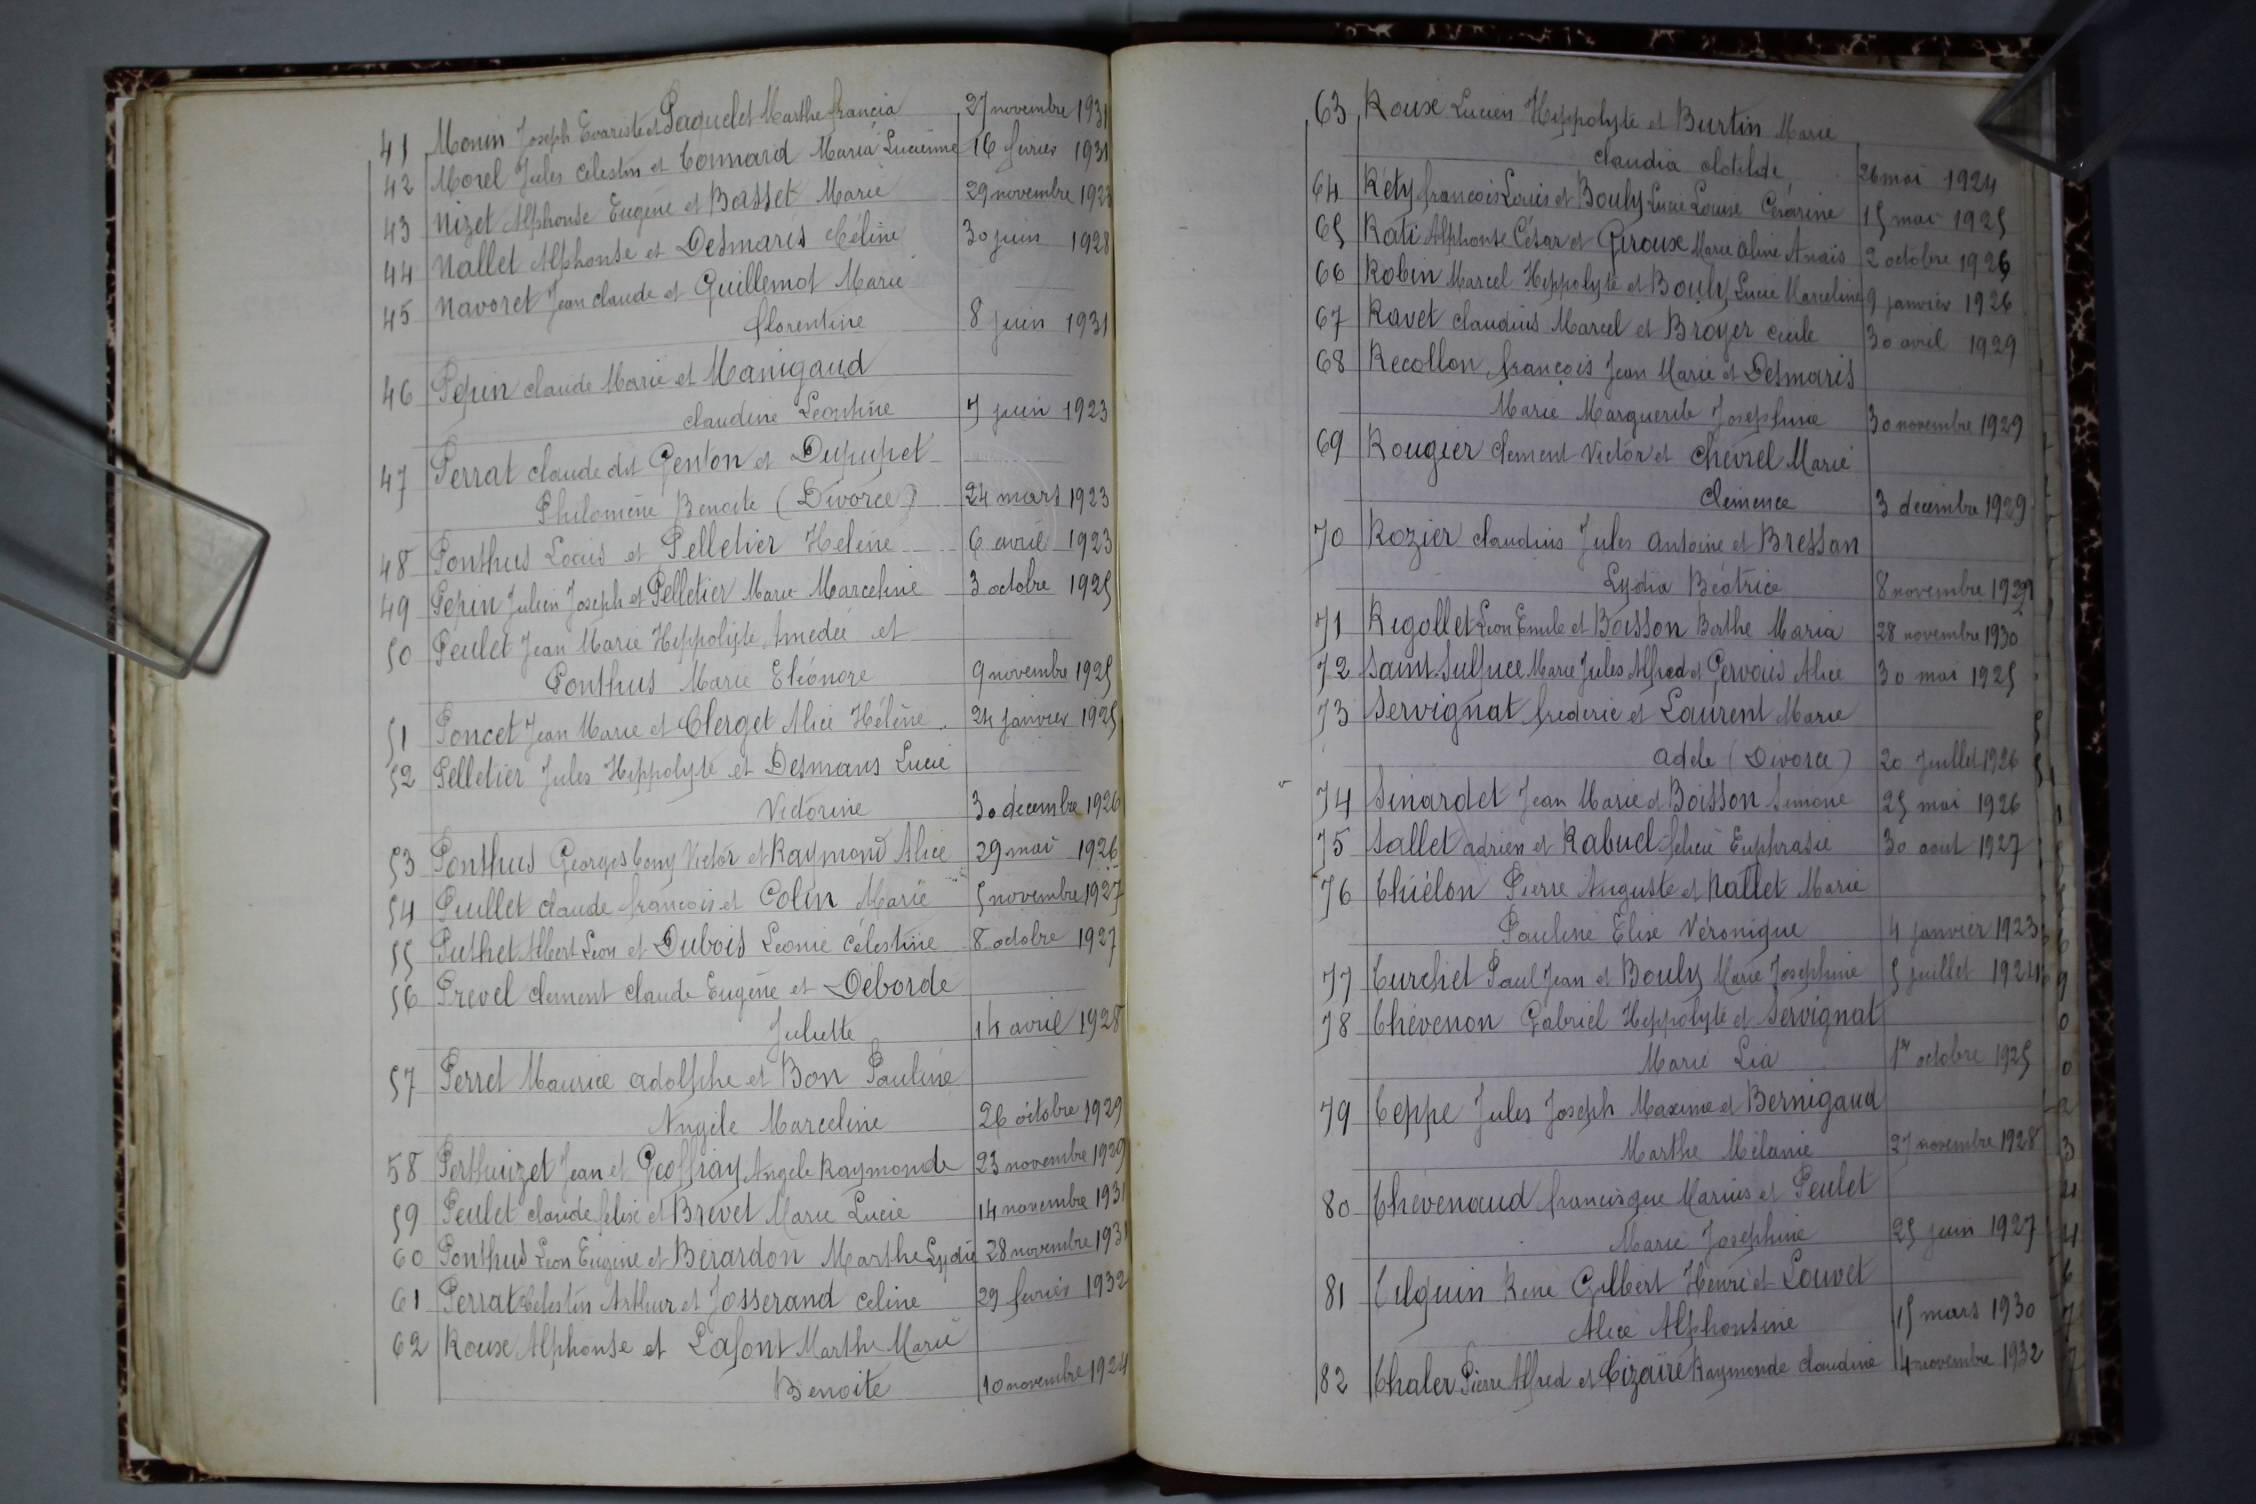 41 Monin Joseph Evariste et Paquelet Marthe francia 27 novembre 1931
42 Morel Jules Celestin et Connard Maria Lucienne 16 fevrier 1931
43 Nizet Alphonse Eugène et Basset Marie 29 novembre 1923
44 Nallet Alphonse et Desmaris Céline 30 juin 1928
45 Navoret Jean claude et Guillemot Marie
florentine 8 juin 1931
46 Pepin claude Marie et Manigaud
claudine Leontine 7 juin 1923
47 Perrat claude dit Genton et Dupupet
Philomène Benoite (Divorce) 24 mars 1923
48 Ponthus Louis et Pelletier Helène 6 avril 1923
49 Pepin Julien Joseph et Pelletier Marie Marceline 3 octobre 1925
50 Peulet Jean Marie Hippolyte Amedée et
Ponthus Marie Eléonore 9 novembre 1925
51 Poncet Jean Marie et Clerget Alice Hélène 24 janvier 1925
52 Pelletier Jules Hippolyte et Desmaris Lucie
Victorine 30 decembre 1926
53 Ponthus Georges Tony Victor et Raymond Alice 29 mai 1926
54 Puillet claude francois et Colin Marie 5 novembre 1927
55 Puthet Albert Leon et Dubois Léonie Célestine 8 octobre 1927
56 Prevel clement claude Eugène et Deborde
Juliette 14 avril 1928
57 Perret Maurice adolphe et Bon Pauline
Angèle Marceline 26 octobre 1929
58 Perthuizet Jean et Geoffray Angele Raymonde 23 novembre 1929
59 Peulet claude felix et Brevet Marie Lucie 14 novembre 1931
60 Ponthus Leon Eugène et Berardon Marthe Lydie 28 novembre 1931
61 Perrat Celestin Arthur et Josserand celine 29 fevrier 1932
62 Roux Alphonse et Lafont Marthe Marie
Benoite 10 novembre 1924
63 Roux Lucien Hippolyte et Burtin Marie
claudia clotilde 26 mai 1924
64 Réty francois Louis et Bouly Lucie Louise Césarine 15 mai 1925
65 Rati Alphonse César et Giroux Marie Aline Anaïs 2 octobre 1926
66 Robin Marcel Hippolyte et Bouly Lucie Marceline 9 janvier 1926
67 Ravet claudius Marcel et Broyer Cecile 30 avril 1929
68 Recollon françois Jean Marie et Desmaris
Marie Marguerite Josephine 30 novembre 1929
69 Rougier clement Victor et Chevrel Marie
clemence 3 decembre 1929
70 Rozier claudius Jules Antoine et Bressan
Lydia Béatrice 8 novembre 1929
71 Rigollet Leon Emile et Boisson Berthe Maria 28 novembre 1930
72 Saint-Sulpice Marie Jules Alfred et Gervais Alice 30 mai 1925
73 Servignat frederic et Laurent Marie
adele (Divorce) 20 Juillet 1926
74 Sinardet Jean Marie et Boisson Simone 25 mai 1926
75 Sallet adrien et Rabuel felicie Euphrasie 30 aout 1927
76 Thiélon Pierre Auguste et Nallet Marie
Pauline Elise Véronique 4 janvier 1923
77 Turchet Paul Jean et Bouly Marie Josephine 5 juillet 1924
78 Thévenon Gabriel Hippolyte et Servignat
Marie Lia 1er octobre 1925
79 Teppe Jules Joseph Maxime et Bernigaud
Marthe Mélanie 27 novembre 1928
80 Thévenaud francisque Marius et Peulet
Marie Josephine 25 juin 1927
81 Tilquin Rene Gilbert Henri et Louvet
Alice Alphonsine 15 mars 1930
82 Thaler Pierre Alfred et Tizaïre Raymonde claudine 4 novembre 1932